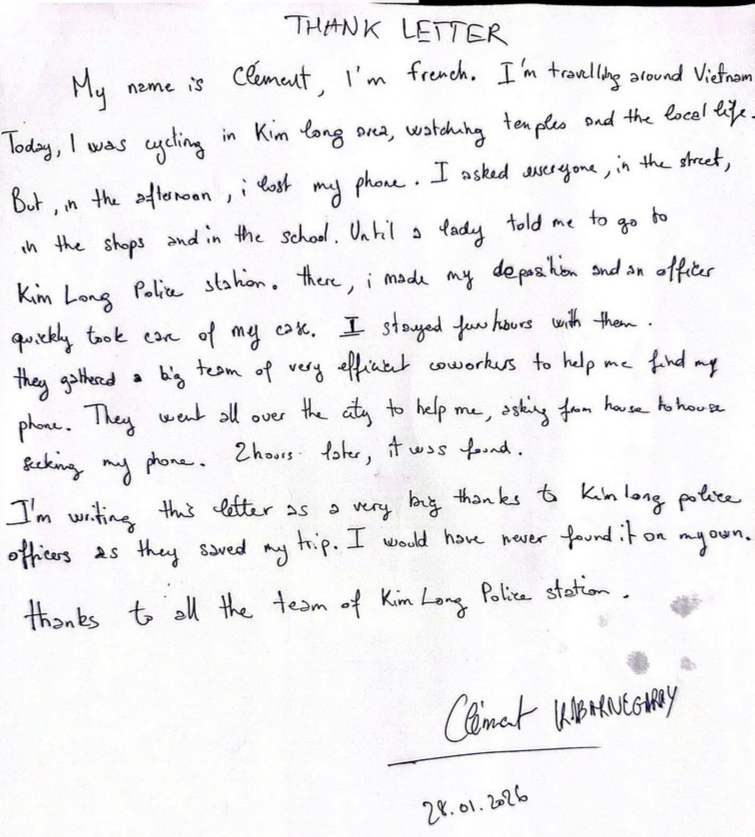 THANK LETTER
My name is Clément, I'm french. I'm travelling around Vietnam
Today, I was cycling in Kim long area, watching temples and the local life.
But, in the afternoon, i lost my phone. I asked everyone, in the street,
in the shops and in the school. Until a lady told me to go to
Kim Long Police station. there, i made my deposition and an officer
quickly took care of my case. I stayed few hours with them.
they gathered a big team of very efficient coworkers to help me find my
phone. They went all over the city to help me, asking from house to house
seeking my phone. 2 hours later, it was found.
I'm writing this letter as a very big thanks to Kim long police
officers as they saved my trip. I would have never found it on my own.
thanks to all the team of Kim Long Police station.
Clément
28.01.2026